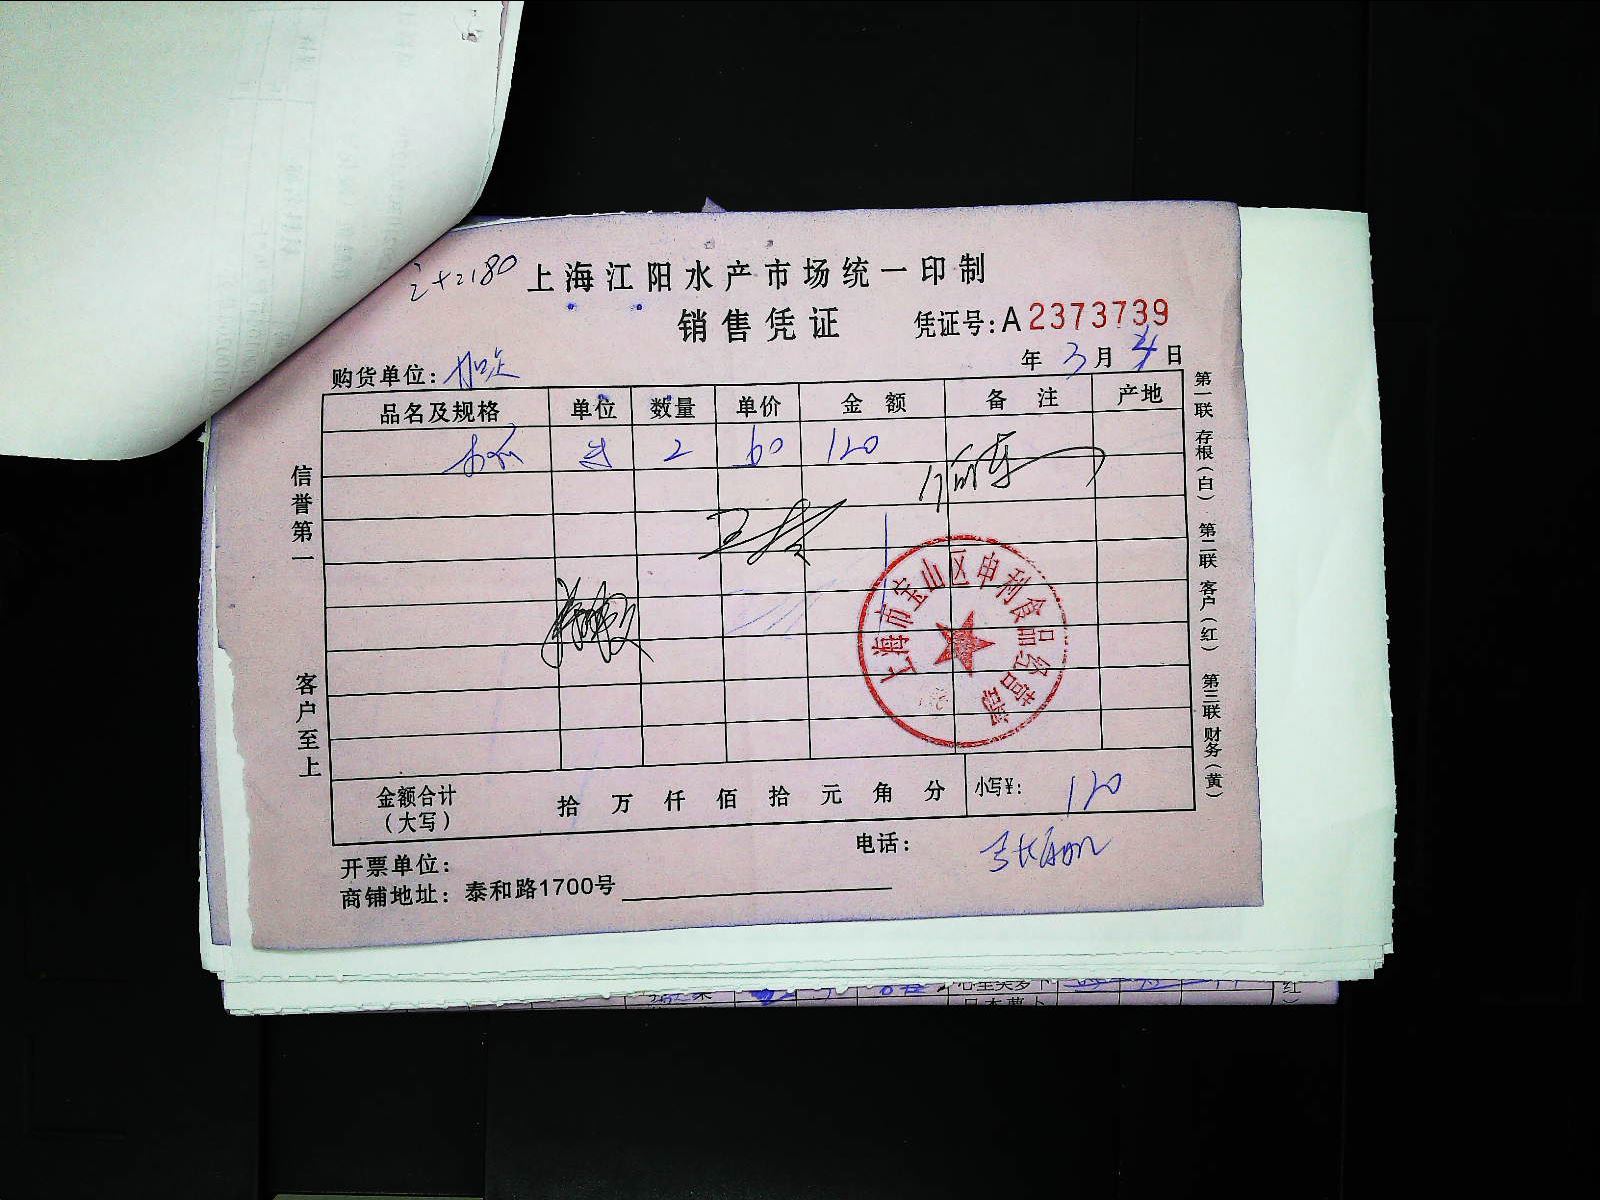 上海江阳水产市场统一印制
销售凭证
凭证号:A2373739
年 3月4日
购货单位:
品名及规格 单位 数量 单价 金额 备注 产地
2 60 120
信誉第一
客户至上
第一联 存根(白) 第二联 客户(红) 第三联 财务(黄)
上海市宝山区申利食品经营部
金额合计(大写) 拾 万 仟 佰 拾 元 角 分 小写¥: 120
电话:
开票单位:
商铺地址: 泰和路1700号